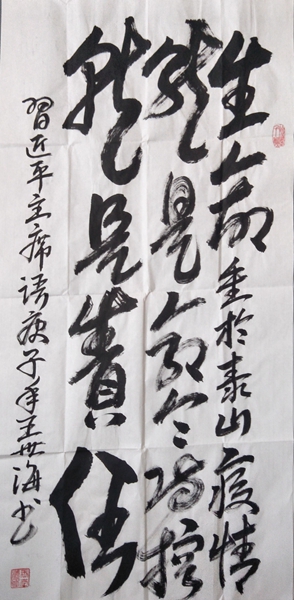 生命重於泰山疫情
就是命令防控
就是責任
習近平主席語庚子年王世海书